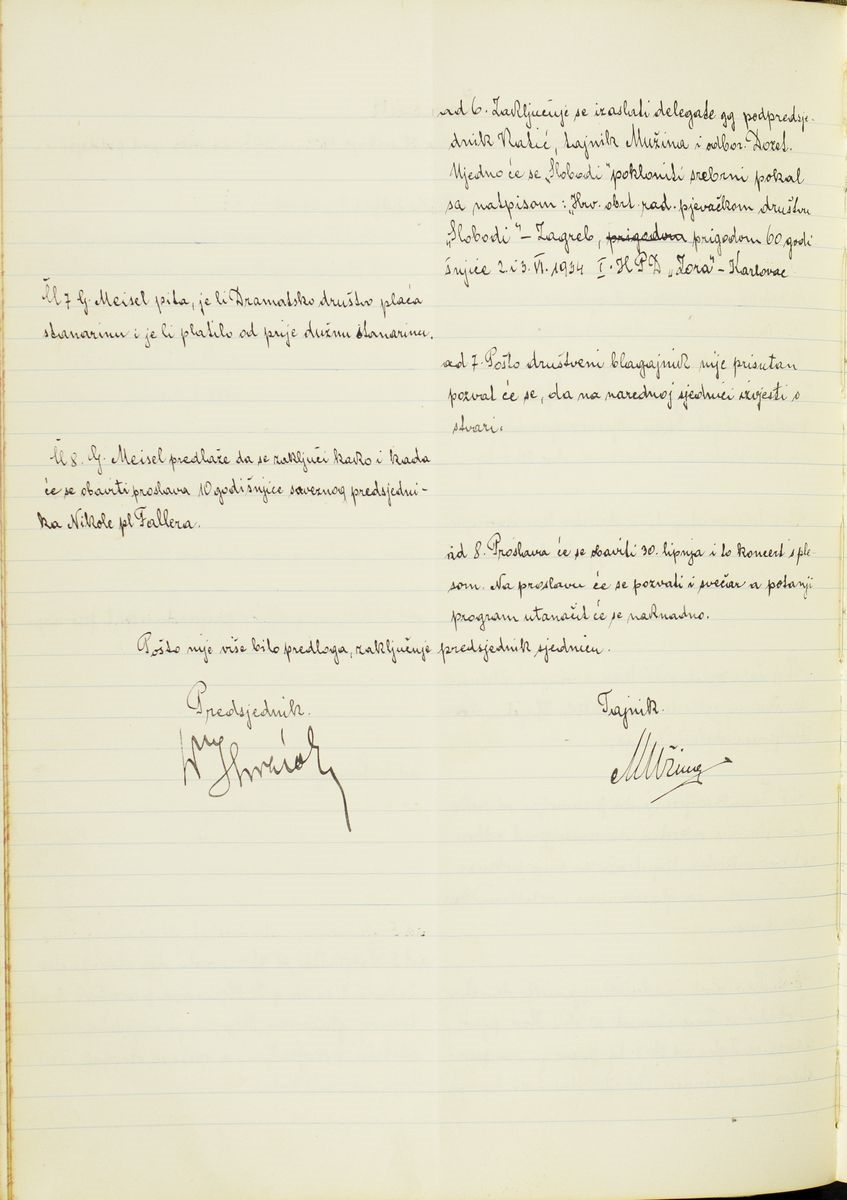 ad 6. Zaključuje se izaslati delegate gg podpredsje-
dnik Ratić, tajnik Mužina i odbor. Dozet.
Ujedno će se „Slobodi" pokloniti srebrni pokal
sa natpisom: „Hrv. obrt. rad. pjevačkom društvu
„Slobodi" – Zagreb, prigodom prigodom 60 godi
šnjice 2. i 3. VI. 1934 I. H P D „Zora" – Karlovac
Čl 7 G. Meisel pita, je li Dramatsko društvo plaća
stanarinu i je li platilo od prije dužnu stanarinu.
ad 7. Pošto društveni blagajnik nije prisutan
pozvat će se, da na narednoj sjednici izvjesti o
stvari.
Čl 8. G. Meisel predlaže da se zaključi kako i kada
će se obaviti proslava 10 godišnjice saveznog predsjedni-
ka Nikole pl Fallera.
ad 8. Proslava će se obaviti 30. lipnja i to koncert s ple-
som. Na proslavu će se pozvati i svečar a potanji
program utanačit će se naknadno.
Pošto nije više bilo predloga, zaključuje predsjednik sjednicu.
Predsjednik.
Tajnik.
MMužina